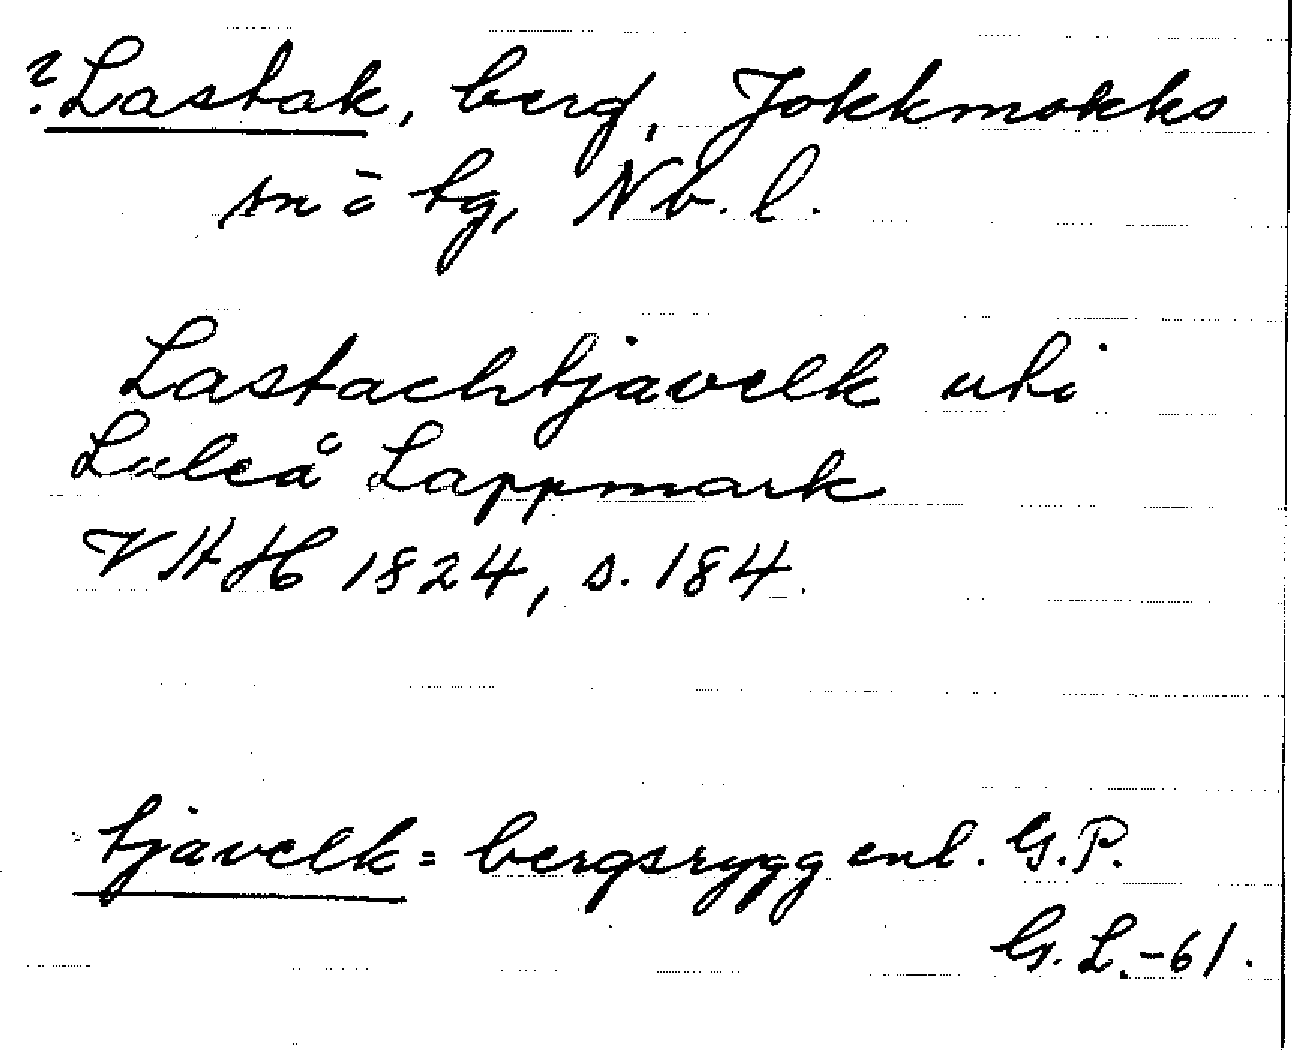 ? Lastak, berg, Jokkmokks
sn o tg, Nb. l.
Lastachtjavelk uti
Luleå Lappmark
VAH 1824, s. 184.
tjavelk = bergsrygg enl. G. P.
G. L. -61.